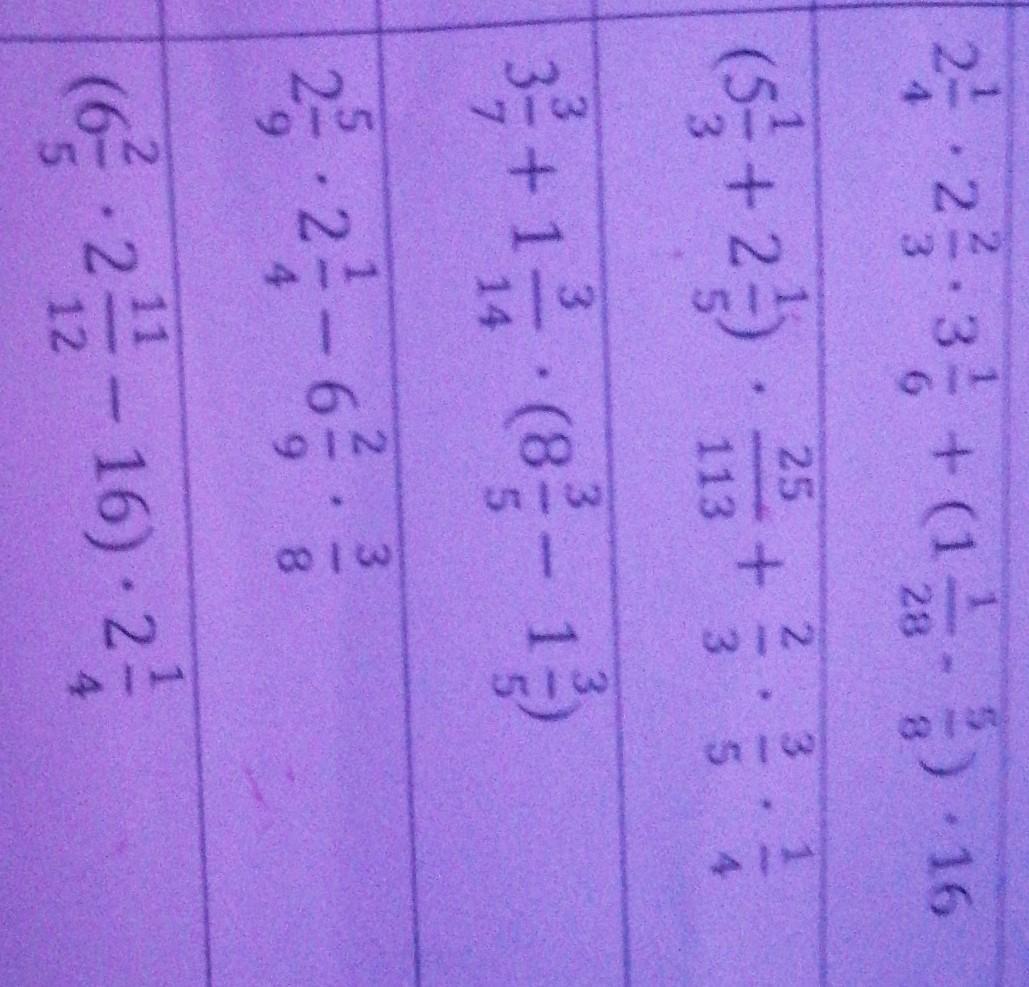 2 1/4 · 2 2/3 · 3 1/6 + (1 1/28 - 5/8) · 16
(5 1/3 + 2 1/5) · 25/113 + 2/3 · 3/5 · 1/4
3 3/7 + 1 3/14 · (8 3/5 − 1 3/5)
2 5/9 · 2 1/4 − 6 2/9 · 3/8
(6 2/5 · 2 11/12 − 16) · 2 1/4